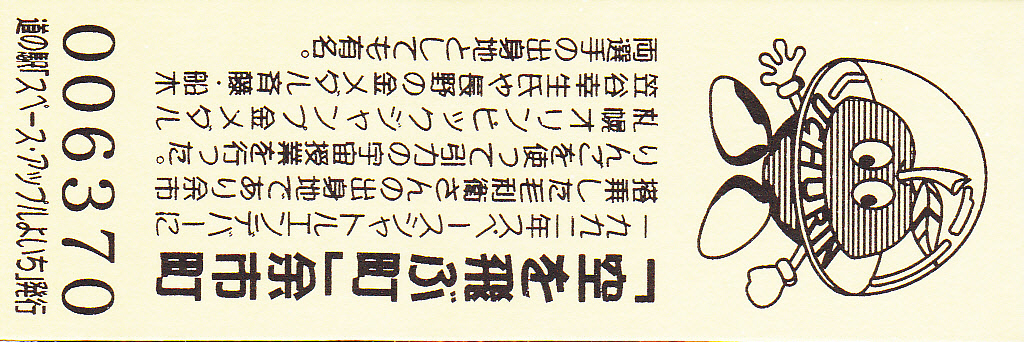 「空を飛ぶ町」余市町
一九九二年スペースシャトルエンデバーに
搭乗した毛利衛さんの出身地であり余市
りんごを使って引力の宇宙授業を行った。
札幌オリンピックジャンプ金メダル
笠谷幸生氏や長野の金メダル斎藤・船木
両選手の出身地としても有名。
UCHURIN
006370
道の駅「スペース・アップルよいち」発行